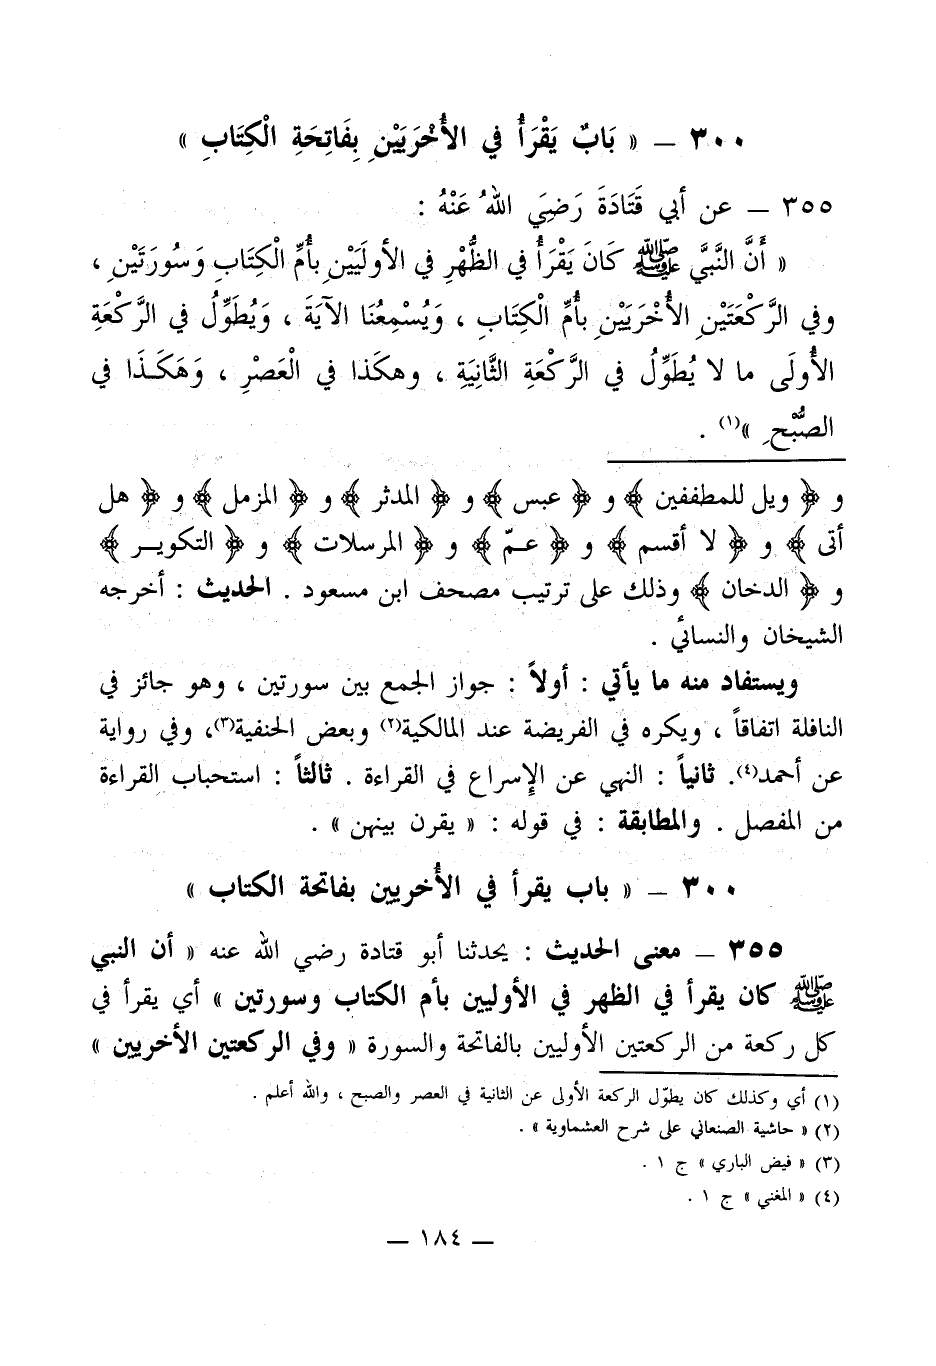 ٣٠٠ – « بَابٌ يَقْرَأُ في الأُخْرَيَيْنِ بِفَاتِحَةِ الْكِتَابِ »
٣٥٥ – عن أبي قَتَادَةَ رَضِيَ اللهُ عَنْهُ :
« أَنَّ النَّبِيَّ ﷺ كَانَ يَقْرَأُ في الظُّهْرِ في الأولَيَيْنِ بِأُمِّ الْكِتَابِ وَسُورَتَيْنِ ،
وفي الرَّكْعَتَيْنِ الأُخْرَيَيْنِ بِأُمِّ الْكِتَابِ ، وَيُسْمِعُنَا الآيَةَ ، وَيُطَوِّلُ في الرَّكْعَةِ
الأُولَى ما لا يُطَوِّلُ في الرَّكْعَةِ الثَّانِيَةِ ، وهكَذا في الْعَصْرِ ، وَهَكَـذَا في
الصُّبْحِ »(١) .
و ﴿ ويل للمطففين ﴾ و ﴿ عبس ﴾ و ﴿ المدثر ﴾ و ﴿ المزمل ﴾ و ﴿ هل
أتى ﴾ و ﴿ لا أقسم ﴾ و ﴿ عـمّ ﴾ و ﴿ المرسلات ﴾ و ﴿ التكويـر ﴾
و ﴿ الدخان ﴾ وذلك على ترتيب مصحف ابن مسعود . الحديث : أخرجه
الشيخان والنسائي .
ويستفاد منه ما يأتي : أولاً : جواز الجمع بين سورتين ، وهو جائز في
النافلة اتفاقاً ، ويكره في الفريضة عند المالكية(٢) وبعض الحنفية(٣)، وفي رواية
عن أحمد(٤). ثانياً : النهي عن الإسراع في القراءة . ثالثاً : استحباب القراءة
من المفصل . والمطابقة : في قوله : « يقرن بينهن » .
٣٠٠ – « باب يقرأ في الأخريين بفاتحة الكتاب »
٣٥٥ – معنى الحديث : يحدثنا أبو قتادة رضي الله عنه « أن النبي
ﷺ كان يقرأ في الظهر في الأوليين بأم الكتاب وسورتين » أي يقرأ في
كل ركعة من الركعتين الأوليين بالفاتحة والسورة « وفي الركعتين الأخريين »
(١) أي وكذلك كان يطوّل الركعة الأولى عن الثانية في العصر والصبح ، والله أعلم .
(٢) « حاشية الصنعاني على شرح العشماوية » .
(٣) « فيض الباري » ج ١ .
(٤) « المغني » ج ١ .
– ١٨٤ –